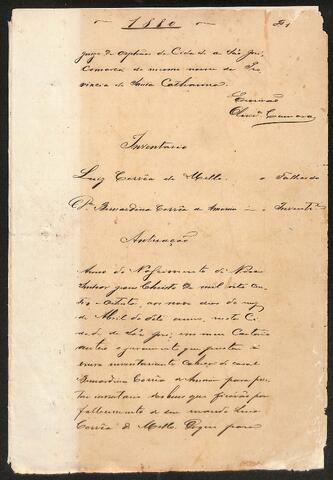 1880
Juizo de Orphãos da Cidade de São José,
Comarca do mesmo nome da Pro
vincia de Santa Catharina
Escrivão
Camara
Inventario
Luiz Corrêa de Mello Fallecido
D. Bernardina Corrêa de Invent
Autuação
Anno do Nascimento de Nosso
Senhor Jesus Christo de mil oito cen
tos oitenta, aos nove dias do mez
de Abril do dito anno, nesta Ci
dade de São José, em meu Cartorio
autuei o juramento que prestou a
viuva inventariante cabeça de casal
Bernardina Corrêa de para
inventario dos bens que ficarão por
fallecimento de seu marido Luiz
Corrêa de Mello para